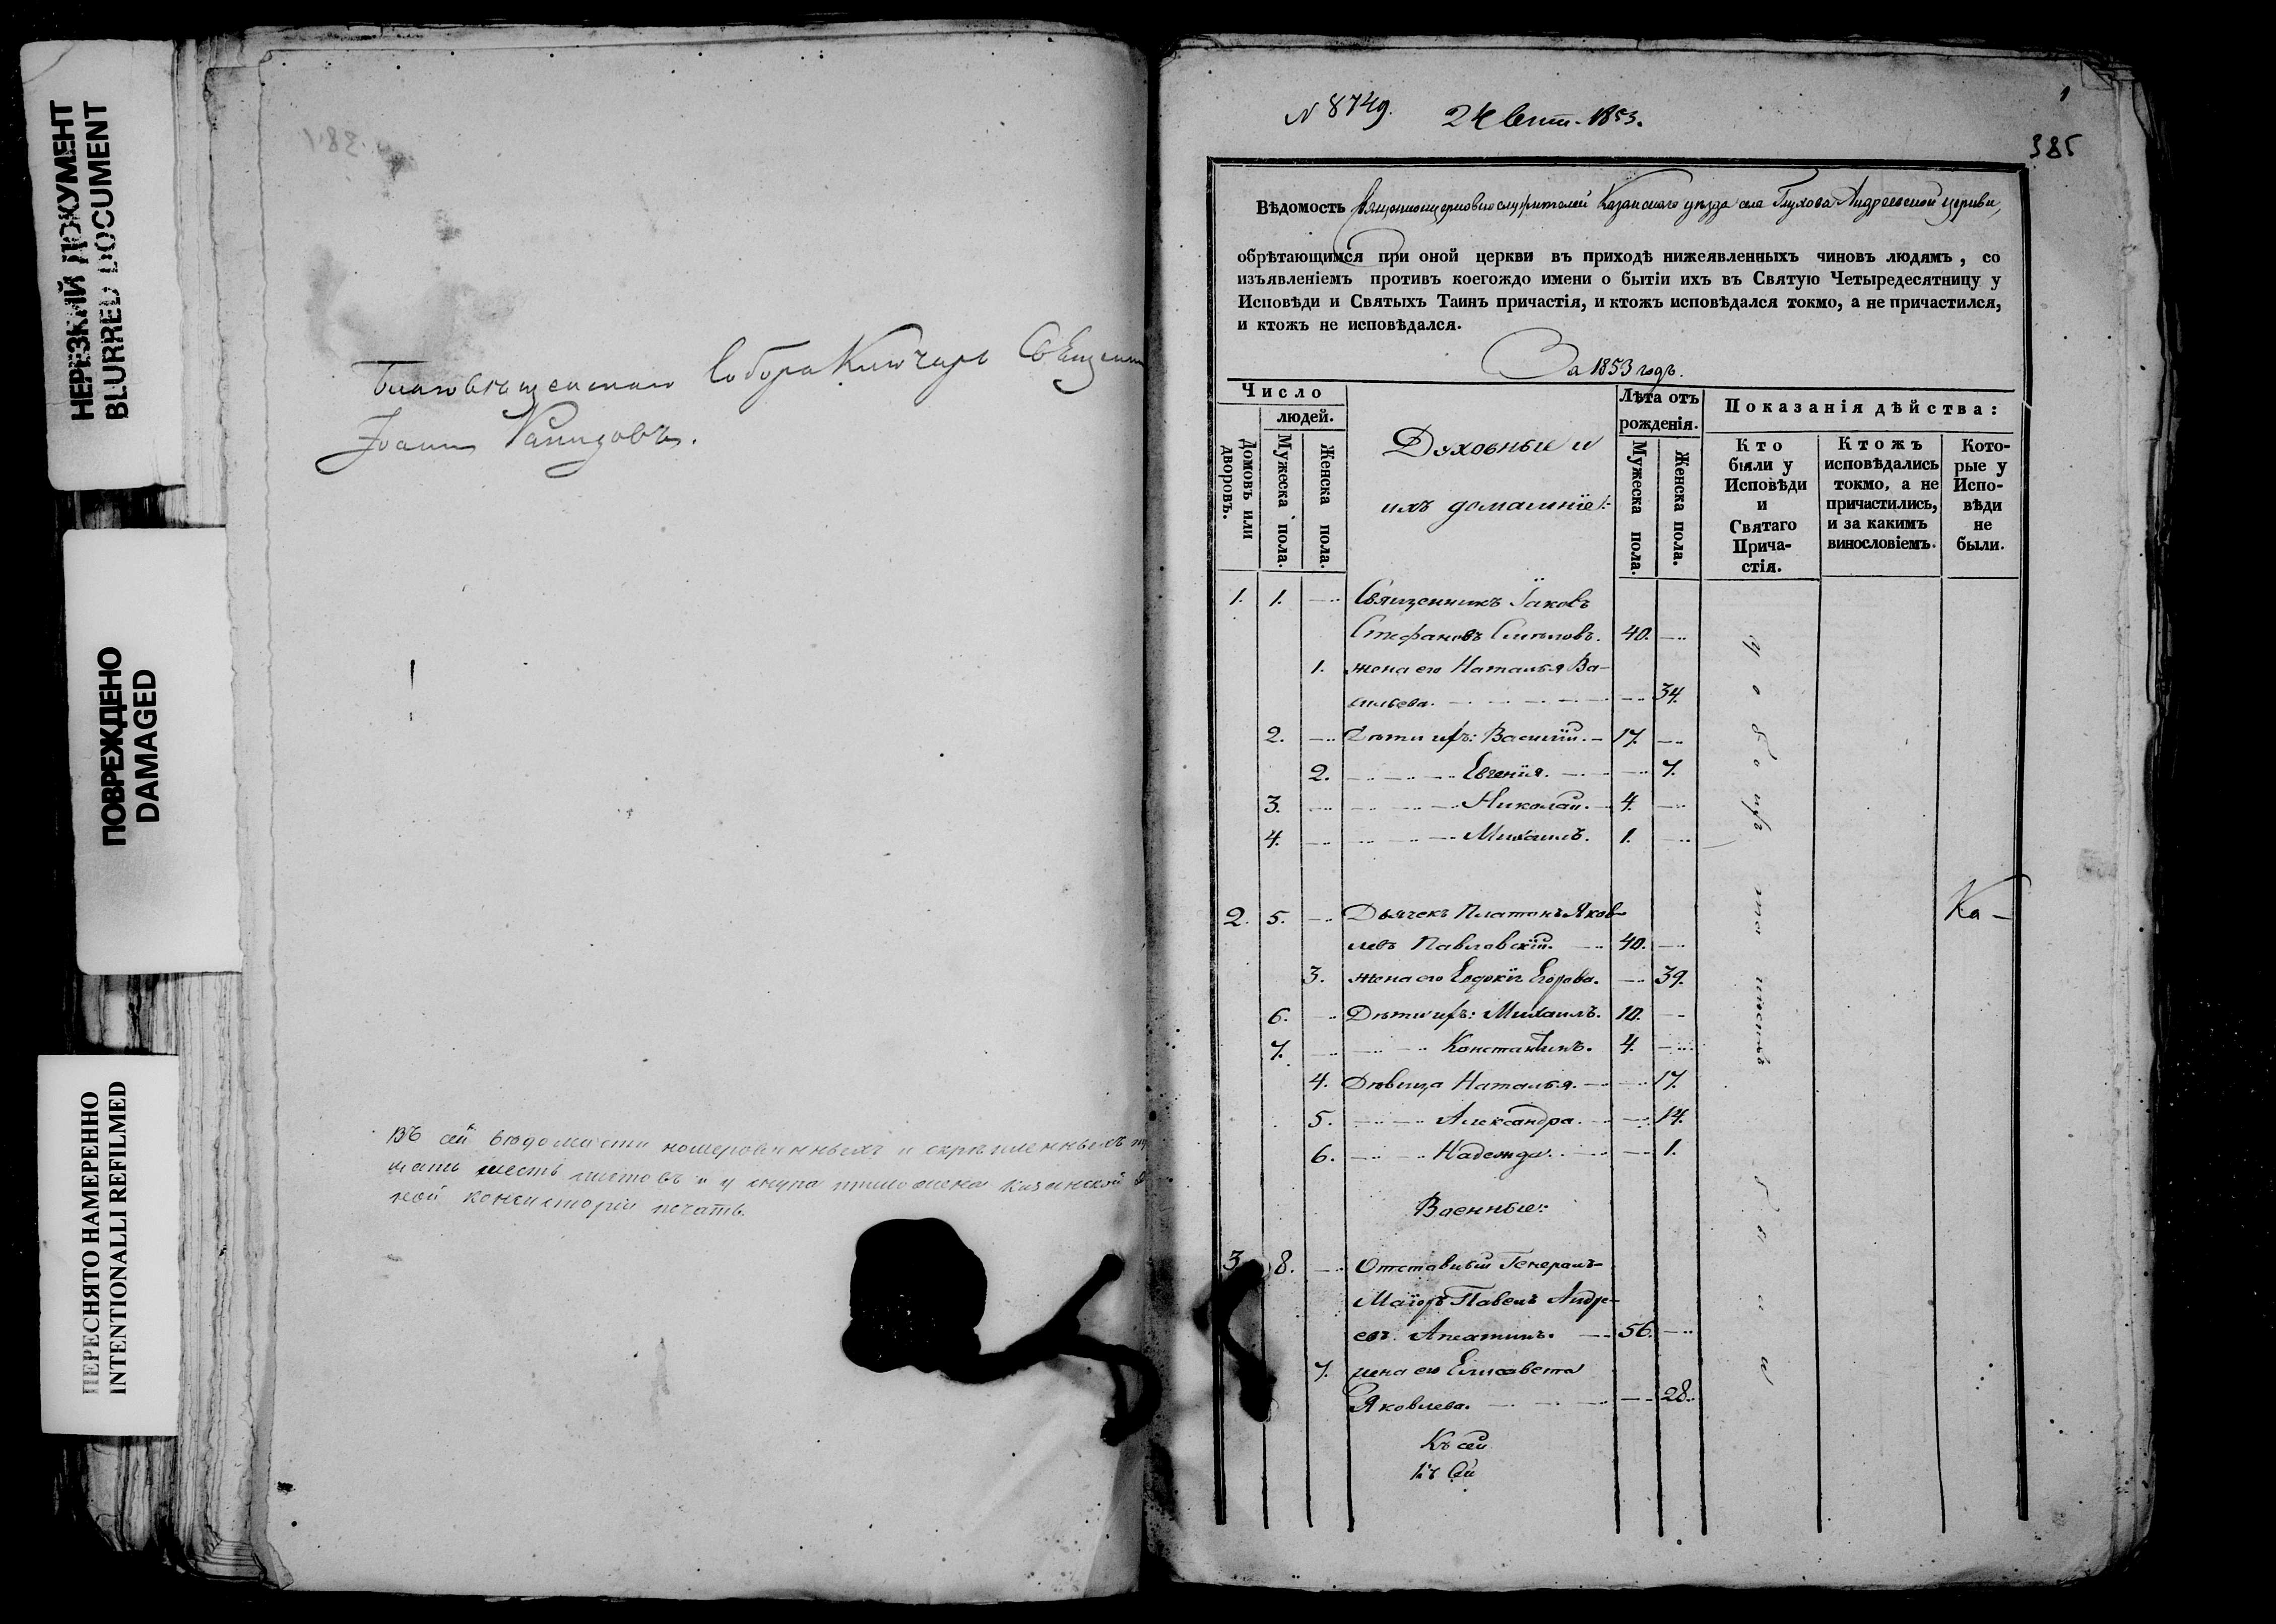 НЕРЕЗКИЙ ДОКУМЕНТ
BLURRED DOCUMENT
ПОВРЕЖДЕНО
DAMAGED
ПЕРЕСНЯТО НАМЕРЕННО
INTENTIONALLI REFILMED
Благовѣщенскаго Собора Ключарь Священн
Іоаннъ
Въ сей вѣдомости номерованныхъ и скрѣпленныхъ
шесть листовъ и у шнура приложена Казанской
консисторіи печать.
N 8749. 24 Сент. 1853.
1
385
Вѣдомость Священноцерковнослужителей Казанскаго уѣзда села Глухова Андреевской церкви,
обрѣтающимся при оной церкви въ приходѣ нижеявленныхъ чиновъ людямъ, со
изъявленіемъ противъ коегождо имени о бытіи ихъ въ Святую Четыредесятницу у
Исповѣди и Святыхъ Таинъ причастія, и ктожъ исповѣдался токмо, а не причастился,
и ктожъ не исповѣдался.
За 1853 годъ.
Число
людей.
Домовъ или дворовъ.
Мужеска пола.
Женска пола.
Духовные и
ихъ домашніе:
Лѣта отъ
рожденія.
Мужеска пола.
Женска пола.
Показанія дѣйства:
Кто
были у
Исповѣди
и
Святаго
Прича-
стія.
Ктожъ
исповѣдались
токмо, а не
причастились,
и за какимъ
винословіемъ.
Кото-
рые у
Испо-
вѣди
не
были.
1. 1. Священникъ Іаковъ
Стефановъ 40.
1. жена его Наталья Ва-
сильева. 34.
2. Дѣти ихъ: Василій. 17.
2. Евгенія. 7.
3. Николай. 4.
4. Михаилъ. 1.
2. 5. Дьячекъ Платонъ Яков-
левъ Павловскій. 40.
3. жена его Евдокія Егорова. 39.
6. Дѣти ихъ: Михаилъ. 10.
7. Константинъ. 4.
4. Дѣвица Наталья. 17.
5. Александра. 14.
6. Надежда. 1.
Военные:
3. 8. Отставный Генералъ-
Маіоръ Павелъ Андре-
евъ 56.
7. жена его Елисавета
Яковлева. 28.
Къ сей
Къ сей
были
Ка-